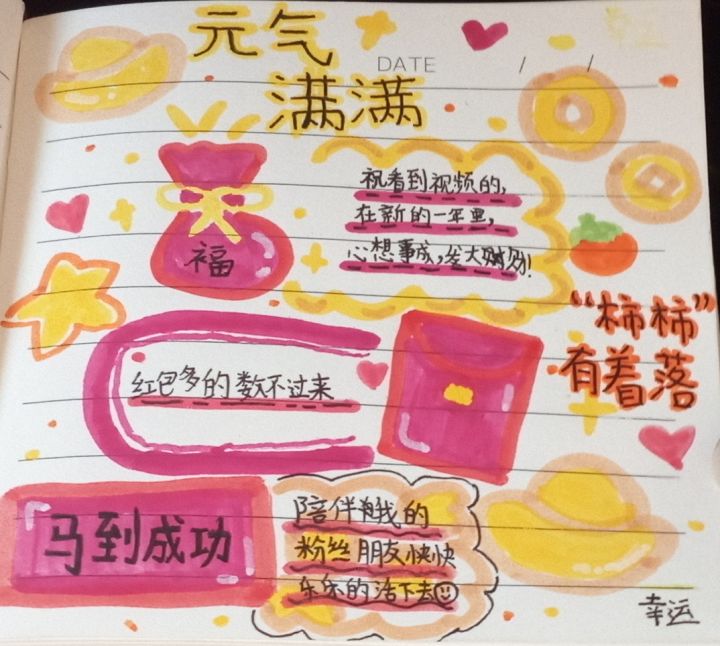 元气
满满
DATE / /
祝看到视频的,
在新的一年里,
福
心想事成,发大财!
“柿柿”
有着落
红包多的数不过来
马到成功
陪伴我的
粉丝朋友快快
乐乐的活下去
幸运